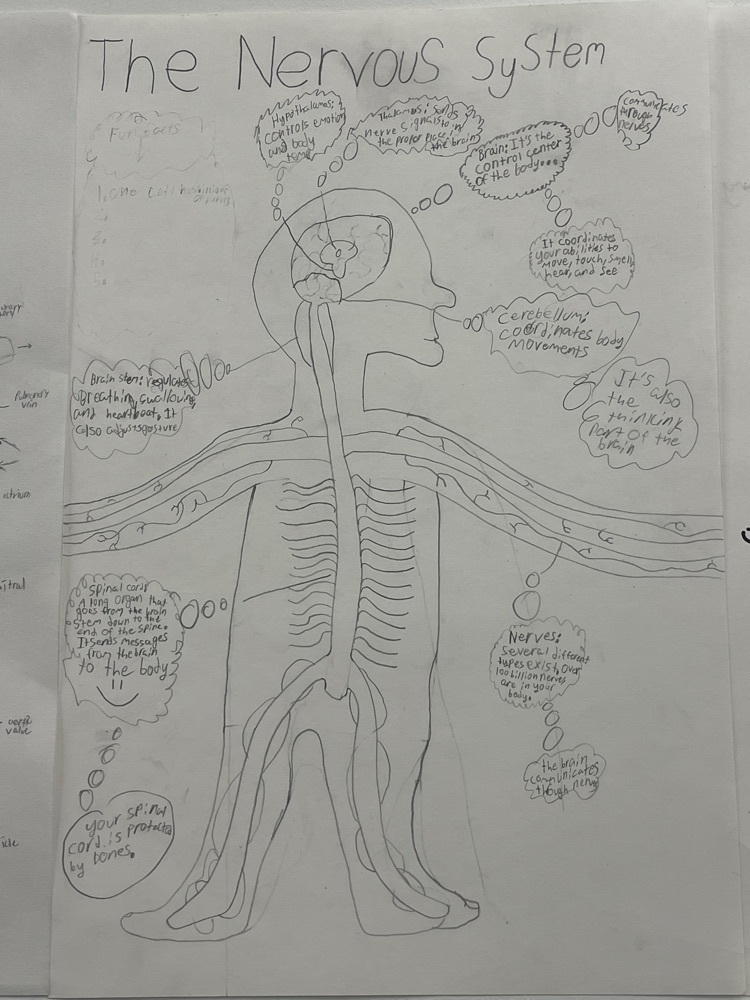 The Nervous System
Hypothalamus:
controls emotion
and body
temp.
Thalamus: Sends
nerve signals to in
the proper place
the brain
Brain: It's the
control center
of the body...
communicates
through
nerves
It coordinates
your abilities to
move, touch, smell
hear, and see
Cerebellum:
coordinates body
movements
It's also
the
thinking
part of the
brain
Brain stem: regulates
Breathing, swallowing
and heartbeat. It
also adjusts posture
Spinal cord
A long organ that
goes from the brain
stem down to the
end of the spine.
It sends messages
from the brain
to the body
your spinal
cord is protected
by bones.
Nerves:
Several different
types exist. Over
100 billion nerves
are in your
body.
the brain
communicates
though nerves
1. One cell
2.
3.
4.
5.
Pulmonary
vein
atrium
valve